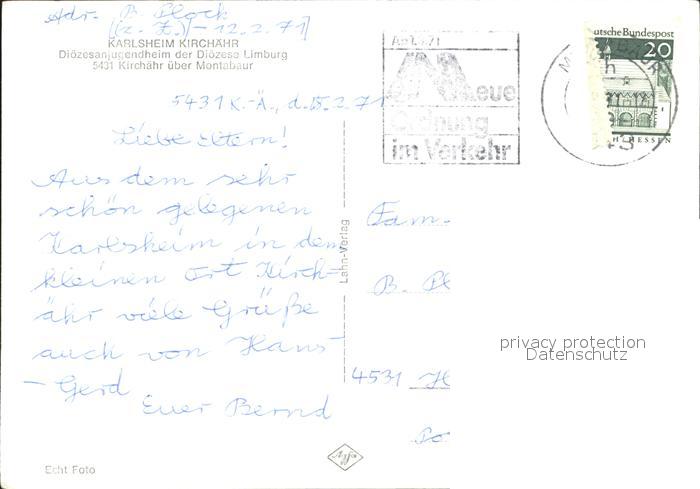 Adr. B. Plock
(z. Z.) - 12.2.71)
KARLSHEIM KIRCHÄHR
Diözesanjugendheim der Diözese Limburg
5431 Kirchähr über Montabaur
5431 K.-Ä., d. 5.2.71
Liebe Eltern!
Aus dem sehr
schön gelegenen
Karlsheim in dem
kleinen Ort Kirch-
ähr viele Grüße
auch von Hans-
-Gerd
Euer Bernd
Echt Foto
Lahn-Verlag
Agfa
Neue
Ordnung
im Verkehr
Deutsche Bundespost
20
HESSEN
Fam.
B. Pl
4531 H
privacy protection
Datenschutz